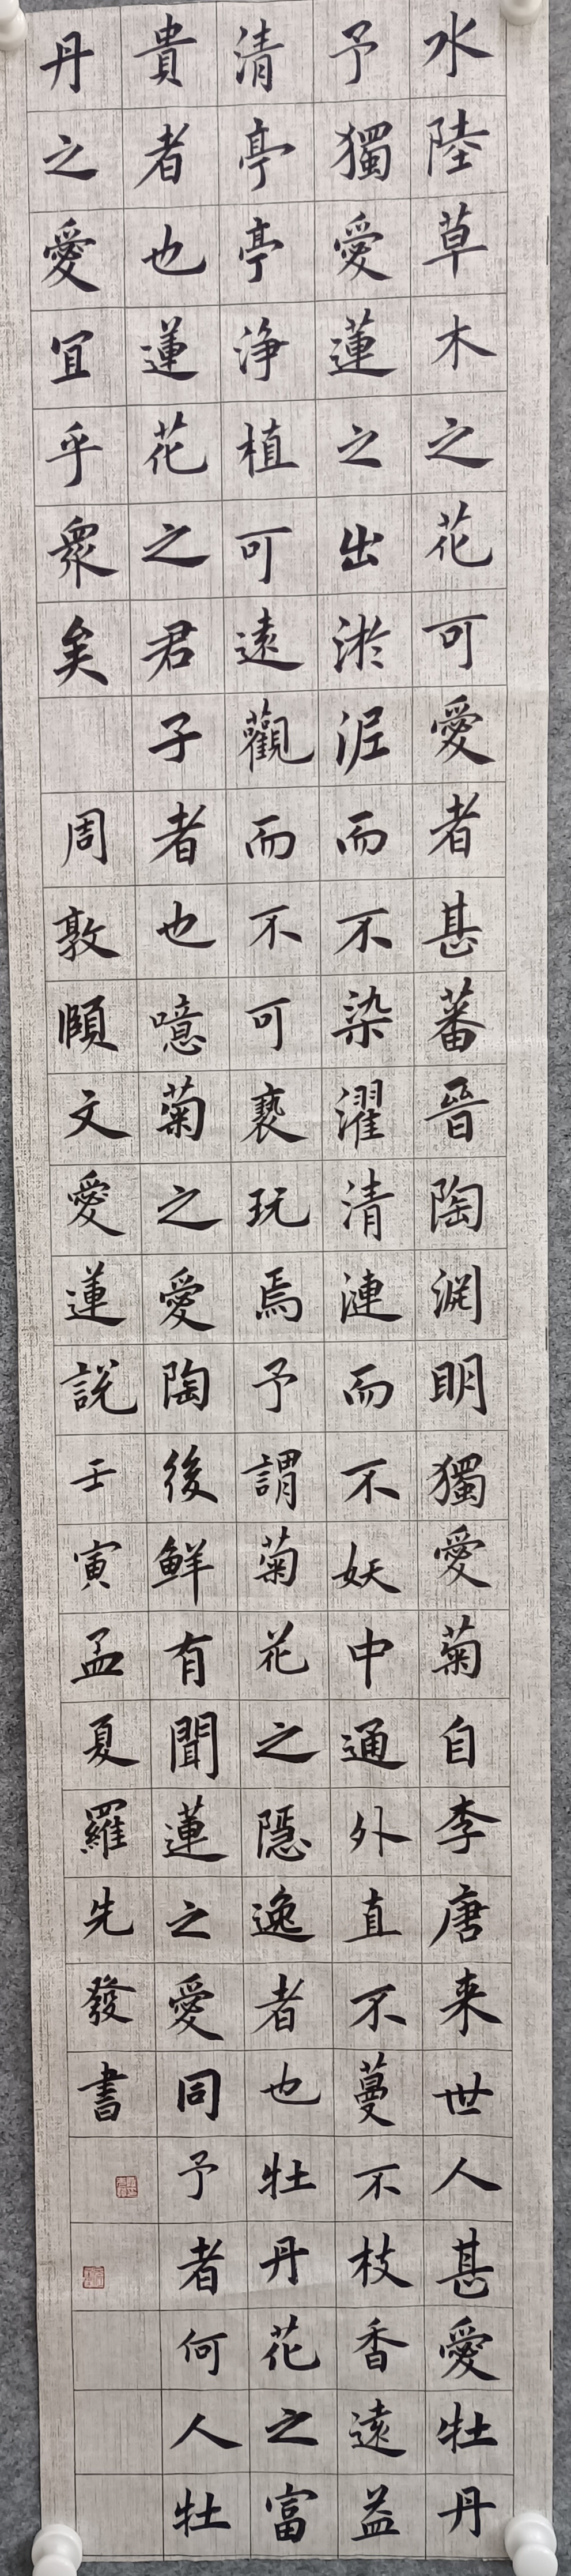 水陸草木之花可愛者甚蕃晉陶淵明獨愛菊自李唐来世人甚愛牡丹
予獨愛蓮之出淤泥而不染濯清漣而不妖中通外直不蔓不枝香遠益
清亭亭淨植可遠觀而不可褻玩焉予謂菊花之隱逸者也牡丹花之富
貴者也蓮花之君子者也噫菊之愛陶後鮮有聞蓮之愛同予者何人牡
丹之愛宜乎衆矣 周敦頤文愛蓮説壬寅孟夏羅先發書